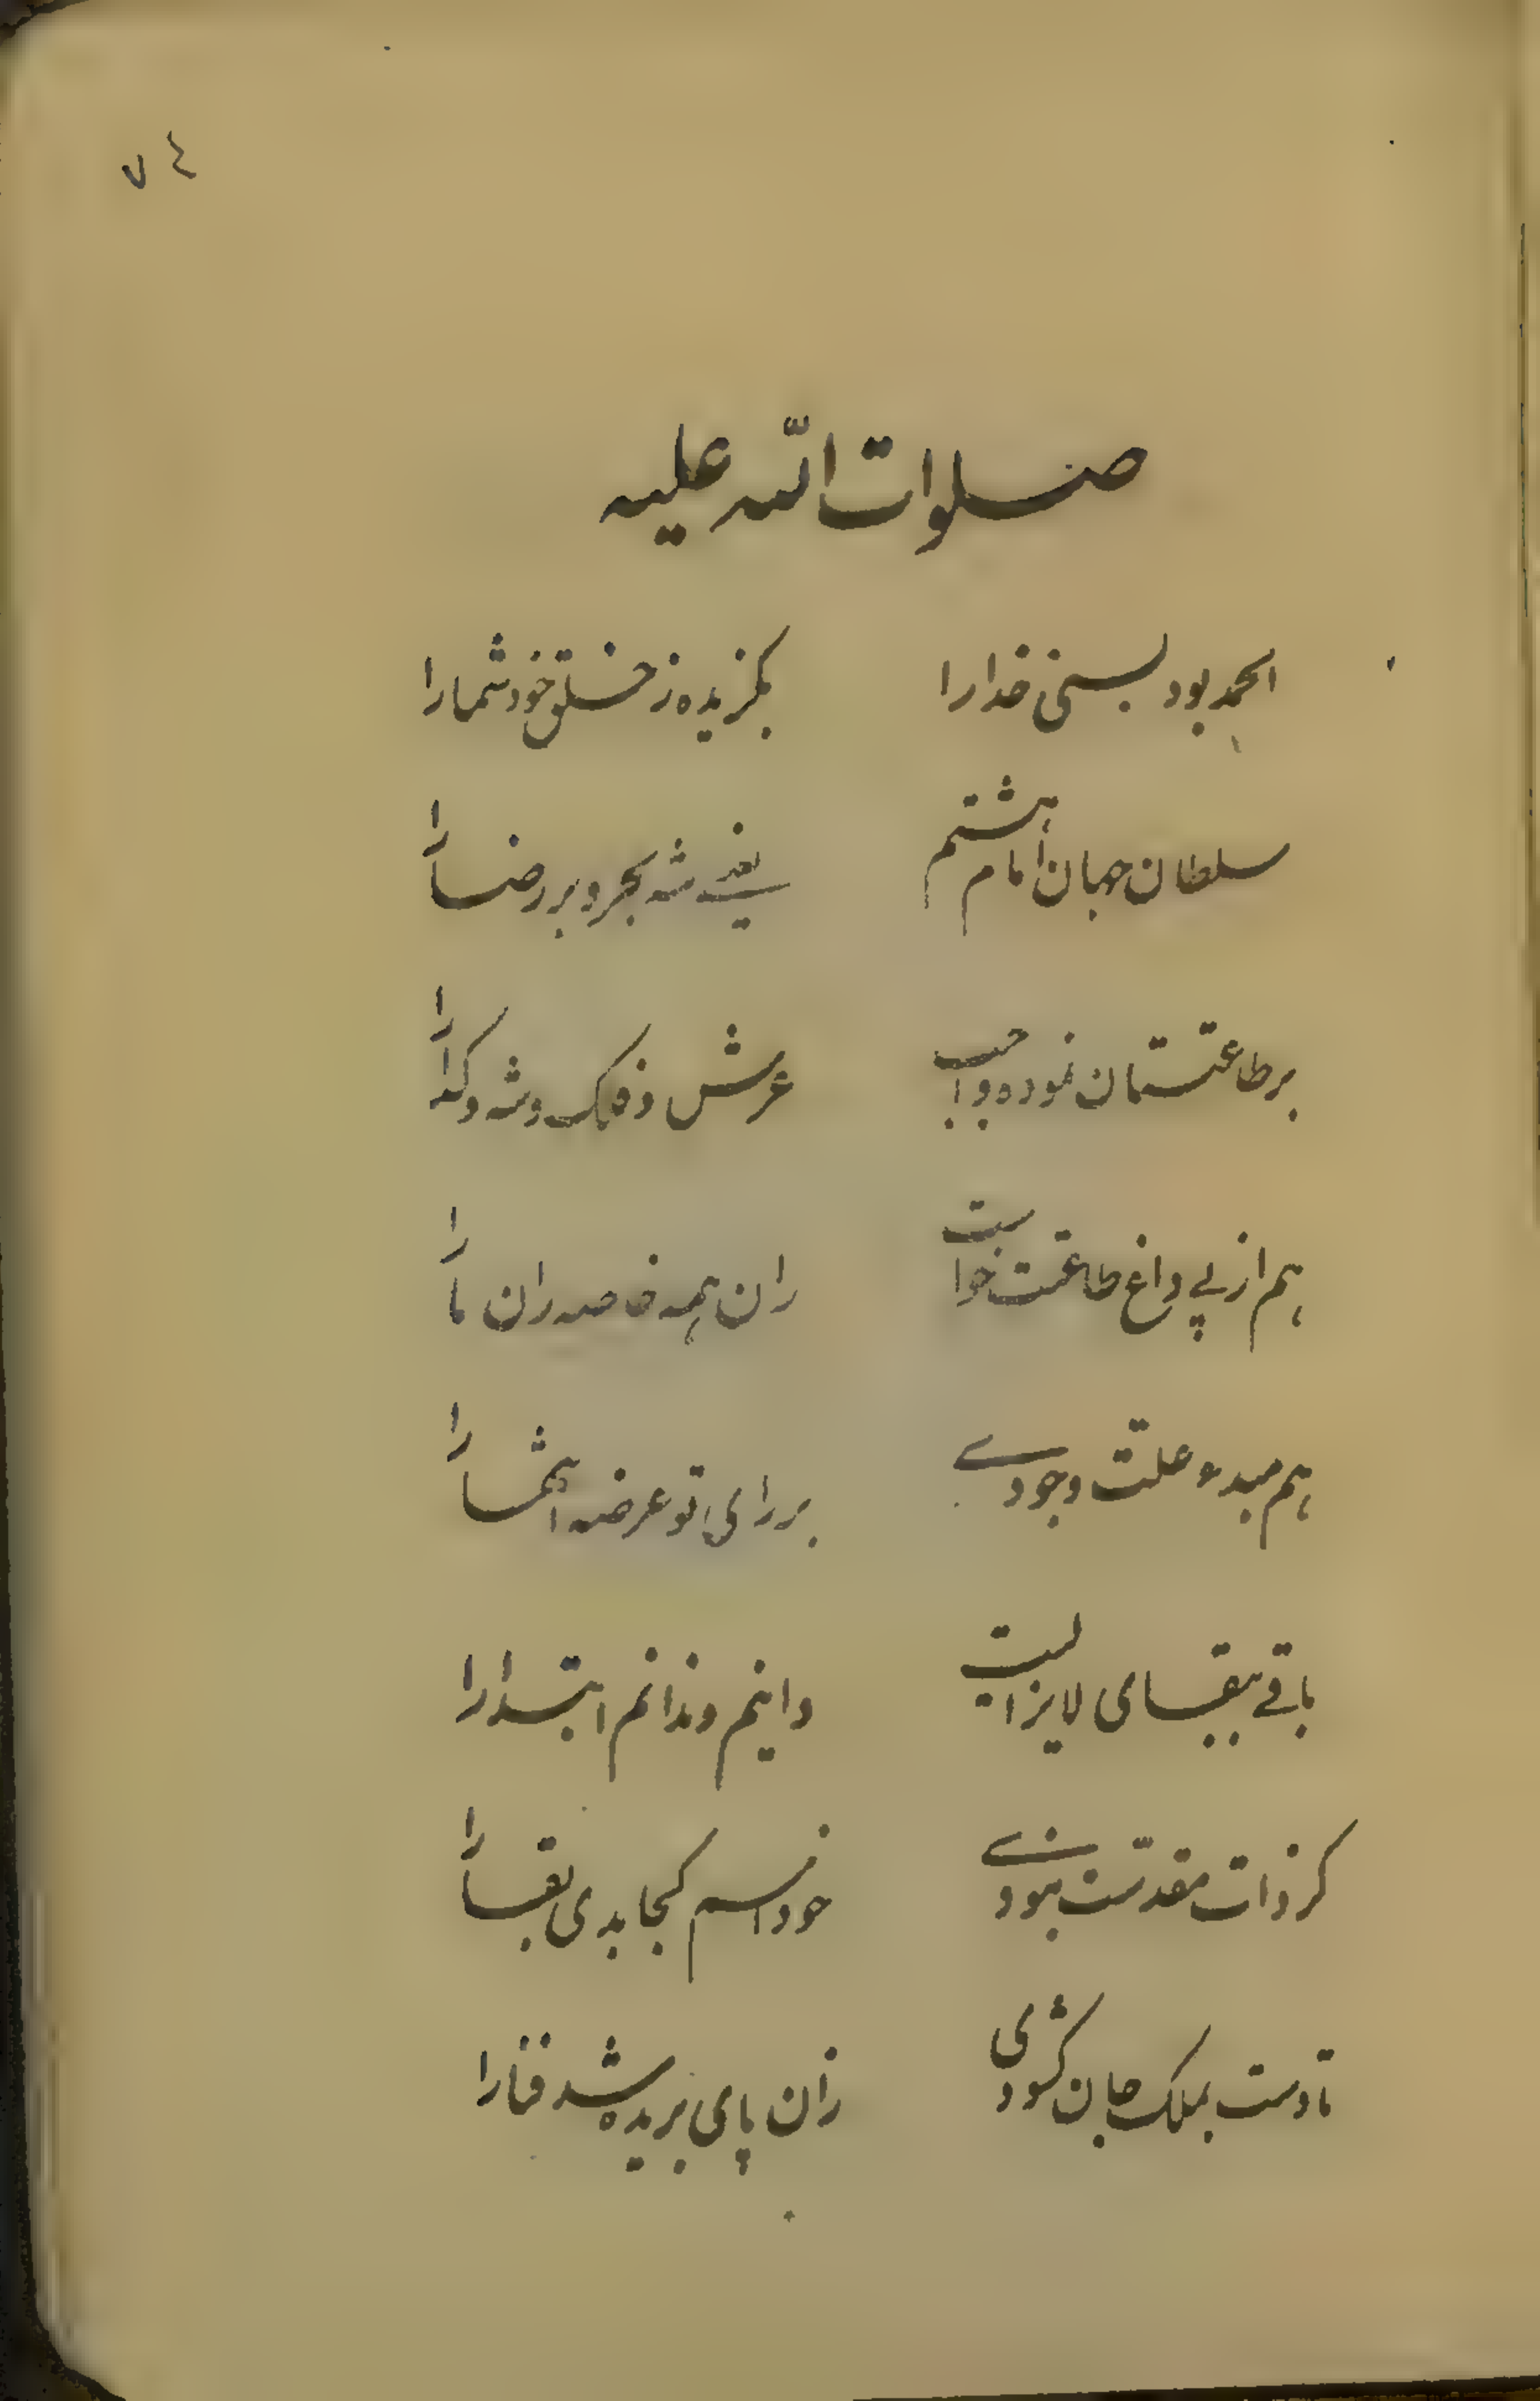 ٧٤
صلوات اللّه علیه
الحمد بود بسی خدارا بگزیده ز خلق خود شمارا
سلطان جهان امام هشتم یعنی شه بحر و بر رضا را
بر طاعتتان نموده واجب عرش و فلک و شه و گدا را
هم از پی داغ طاعتت خواست ران همه خاصه ران ما را
هم مبدء و علت وجودی بر رای تو عرضه انتها را
باقی ببقای لایزالیت دانیم و ندانم ابتدا را
گر ذات مقدست نبودی خود اسم کجا بدی بقا را
تا دست بملک جان گشودی زان پای بریده شد فنا را